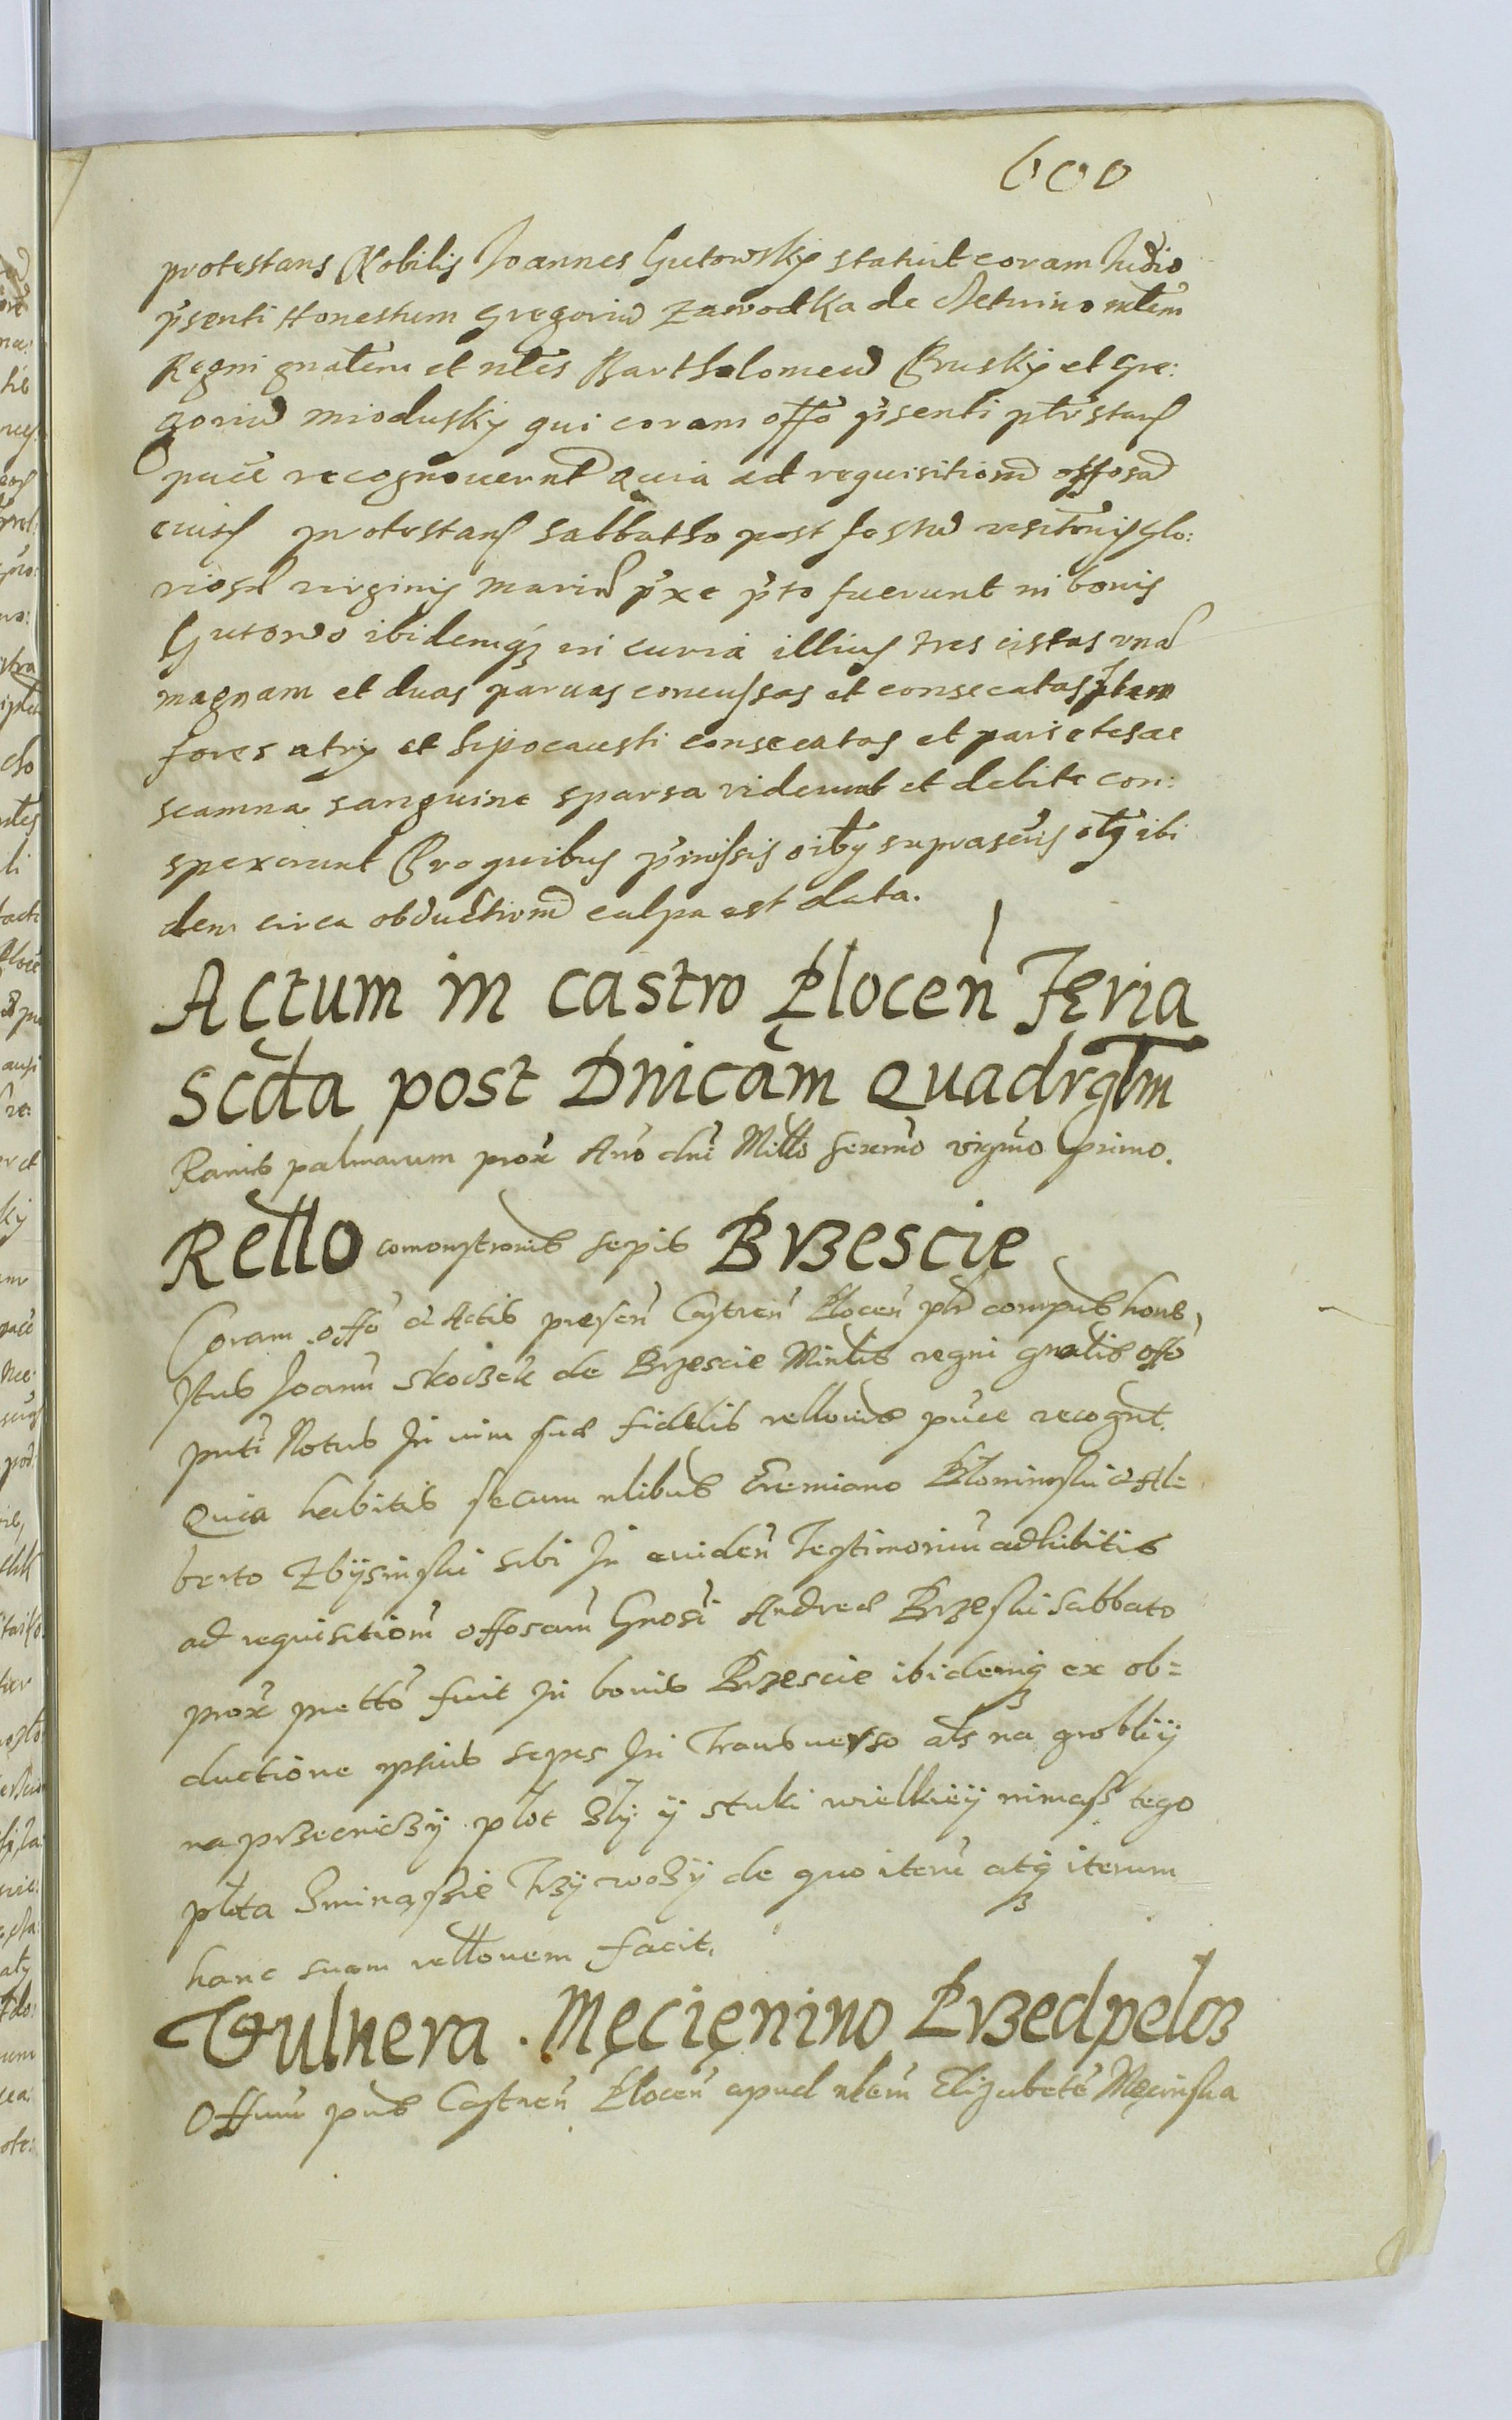 600
protestans Nobilis Joannes Gutowsky statuit coram Iudio
p̃senti Honestum Gregoriũ Zawodka de mltem̃
Regni gnałem et nłes Bartholomeũ Prusky et Gre:
goriũ Miodusky qui coram offo p̃senti
puce recognouernt Quia ad requisitionẽ offosã
eius protestans sabbatho post festũ visitõnis Glo:
riosæ virginis Mariæ p̃xe p̃to fuerunt in bonis
Gutowo ibidemq3 in curia illius tres cistas vnã
magnam et duas paruas concussas et consecatas Item
fores atry et hipocausti consecatas et parietes ac
scamna sanguine sparsa viderunt et debite con:
spexerunt Pro quibus p̃missis oibq suprascris otq ibi
dem circa obductionẽ culpa est data.
Actum in castro Płoceñ Feria
Scda post Dnicam Quadrgłm
Ramis palmarum prox̃ Ano dni Millo sexmo vigmo primo.
Rełło comonstronis sepis Brzescie
Coram offo et Actis preseñ Castreñ Płoceñ plr comparens hone,
stus Joanñ Skoczek de Brzescie Minlis regni gnalis offo
pnti Notus In vim suæ fidelis rellonis puce recognt.
Quia habitis secum nlibus Eremiano Płoninski et Al=
berto Zbijsinski sibi In euideñ Testimonium adhibitis
ad requisitionẽ offosam Gnosi Andreæ Brzeski sabbato
prox̃ pretto fuit In bonis Brzescie ibidemq3 ex ob=
ductione ipsius sepes In Transuerso als na groblij
na przecniczij płot zły ij stuki wielkieij nimasz tego
płota zminąsszie Trzij wozij de quo iterũ atq3 iterum
hanc suam rellonem facit.
Vulnera. Męcięnino Przedpełoz
Offium pns Castreñ Płoceñ apud nłem Elizabetẽ Męcinska